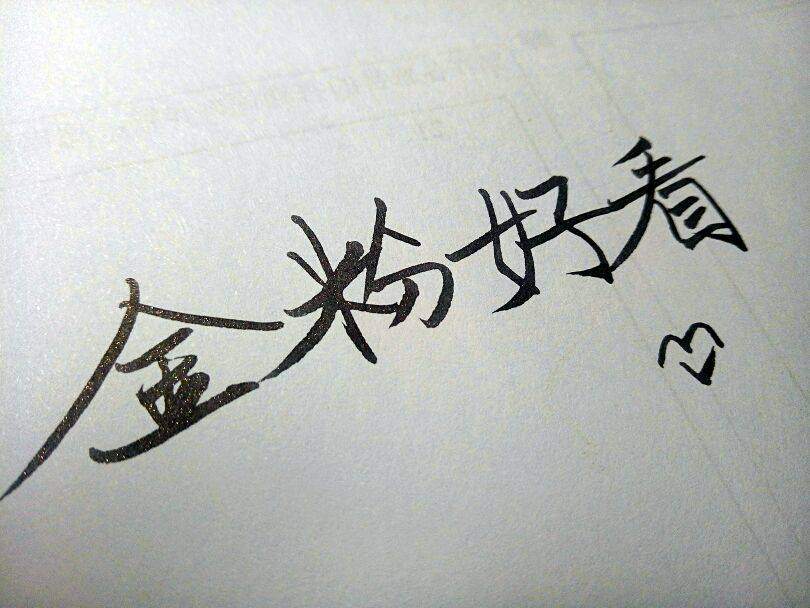 金粉好看